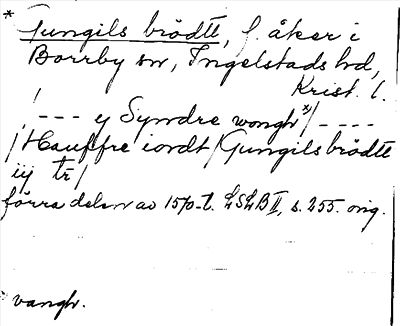 * Gungils brödtt, f. åker i
Borrby sn, Ingelstads hd,
Krist. l.
/ - - - y Syndre wongh x)/ - - - -
/ Hauffre iordt / Gungils brödtt
iij tr /
förra delen av 1570-t. LSLB II, s. 255. orig.
vangh.